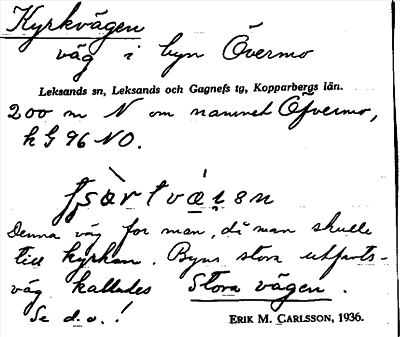 Kyrkvägen
väg i byn Övermo
Leksands sn, Leksands och Gagnefs tg, Kopparbergs län.
200 m N om namnet Öfvermo,
k G 96 NO.
Denna väg for man, då man skulle
till kyrkan. Byns stora utfarts-
väg kallades Stora vägen.
Se d.o.!
ERIK M. CARLSSON, 1936.